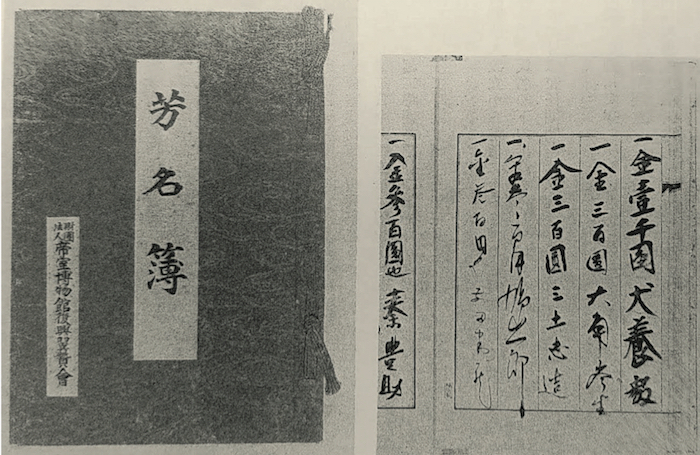 芳名簿
財團法人
帝室博物館復興翼賛會
一金壹千圓犬養毅
一金三百圓大角岑生
一金三百圓三土忠造
一、金参百円鳩山一郎
一金参百円
一金參百圓也秦豊助